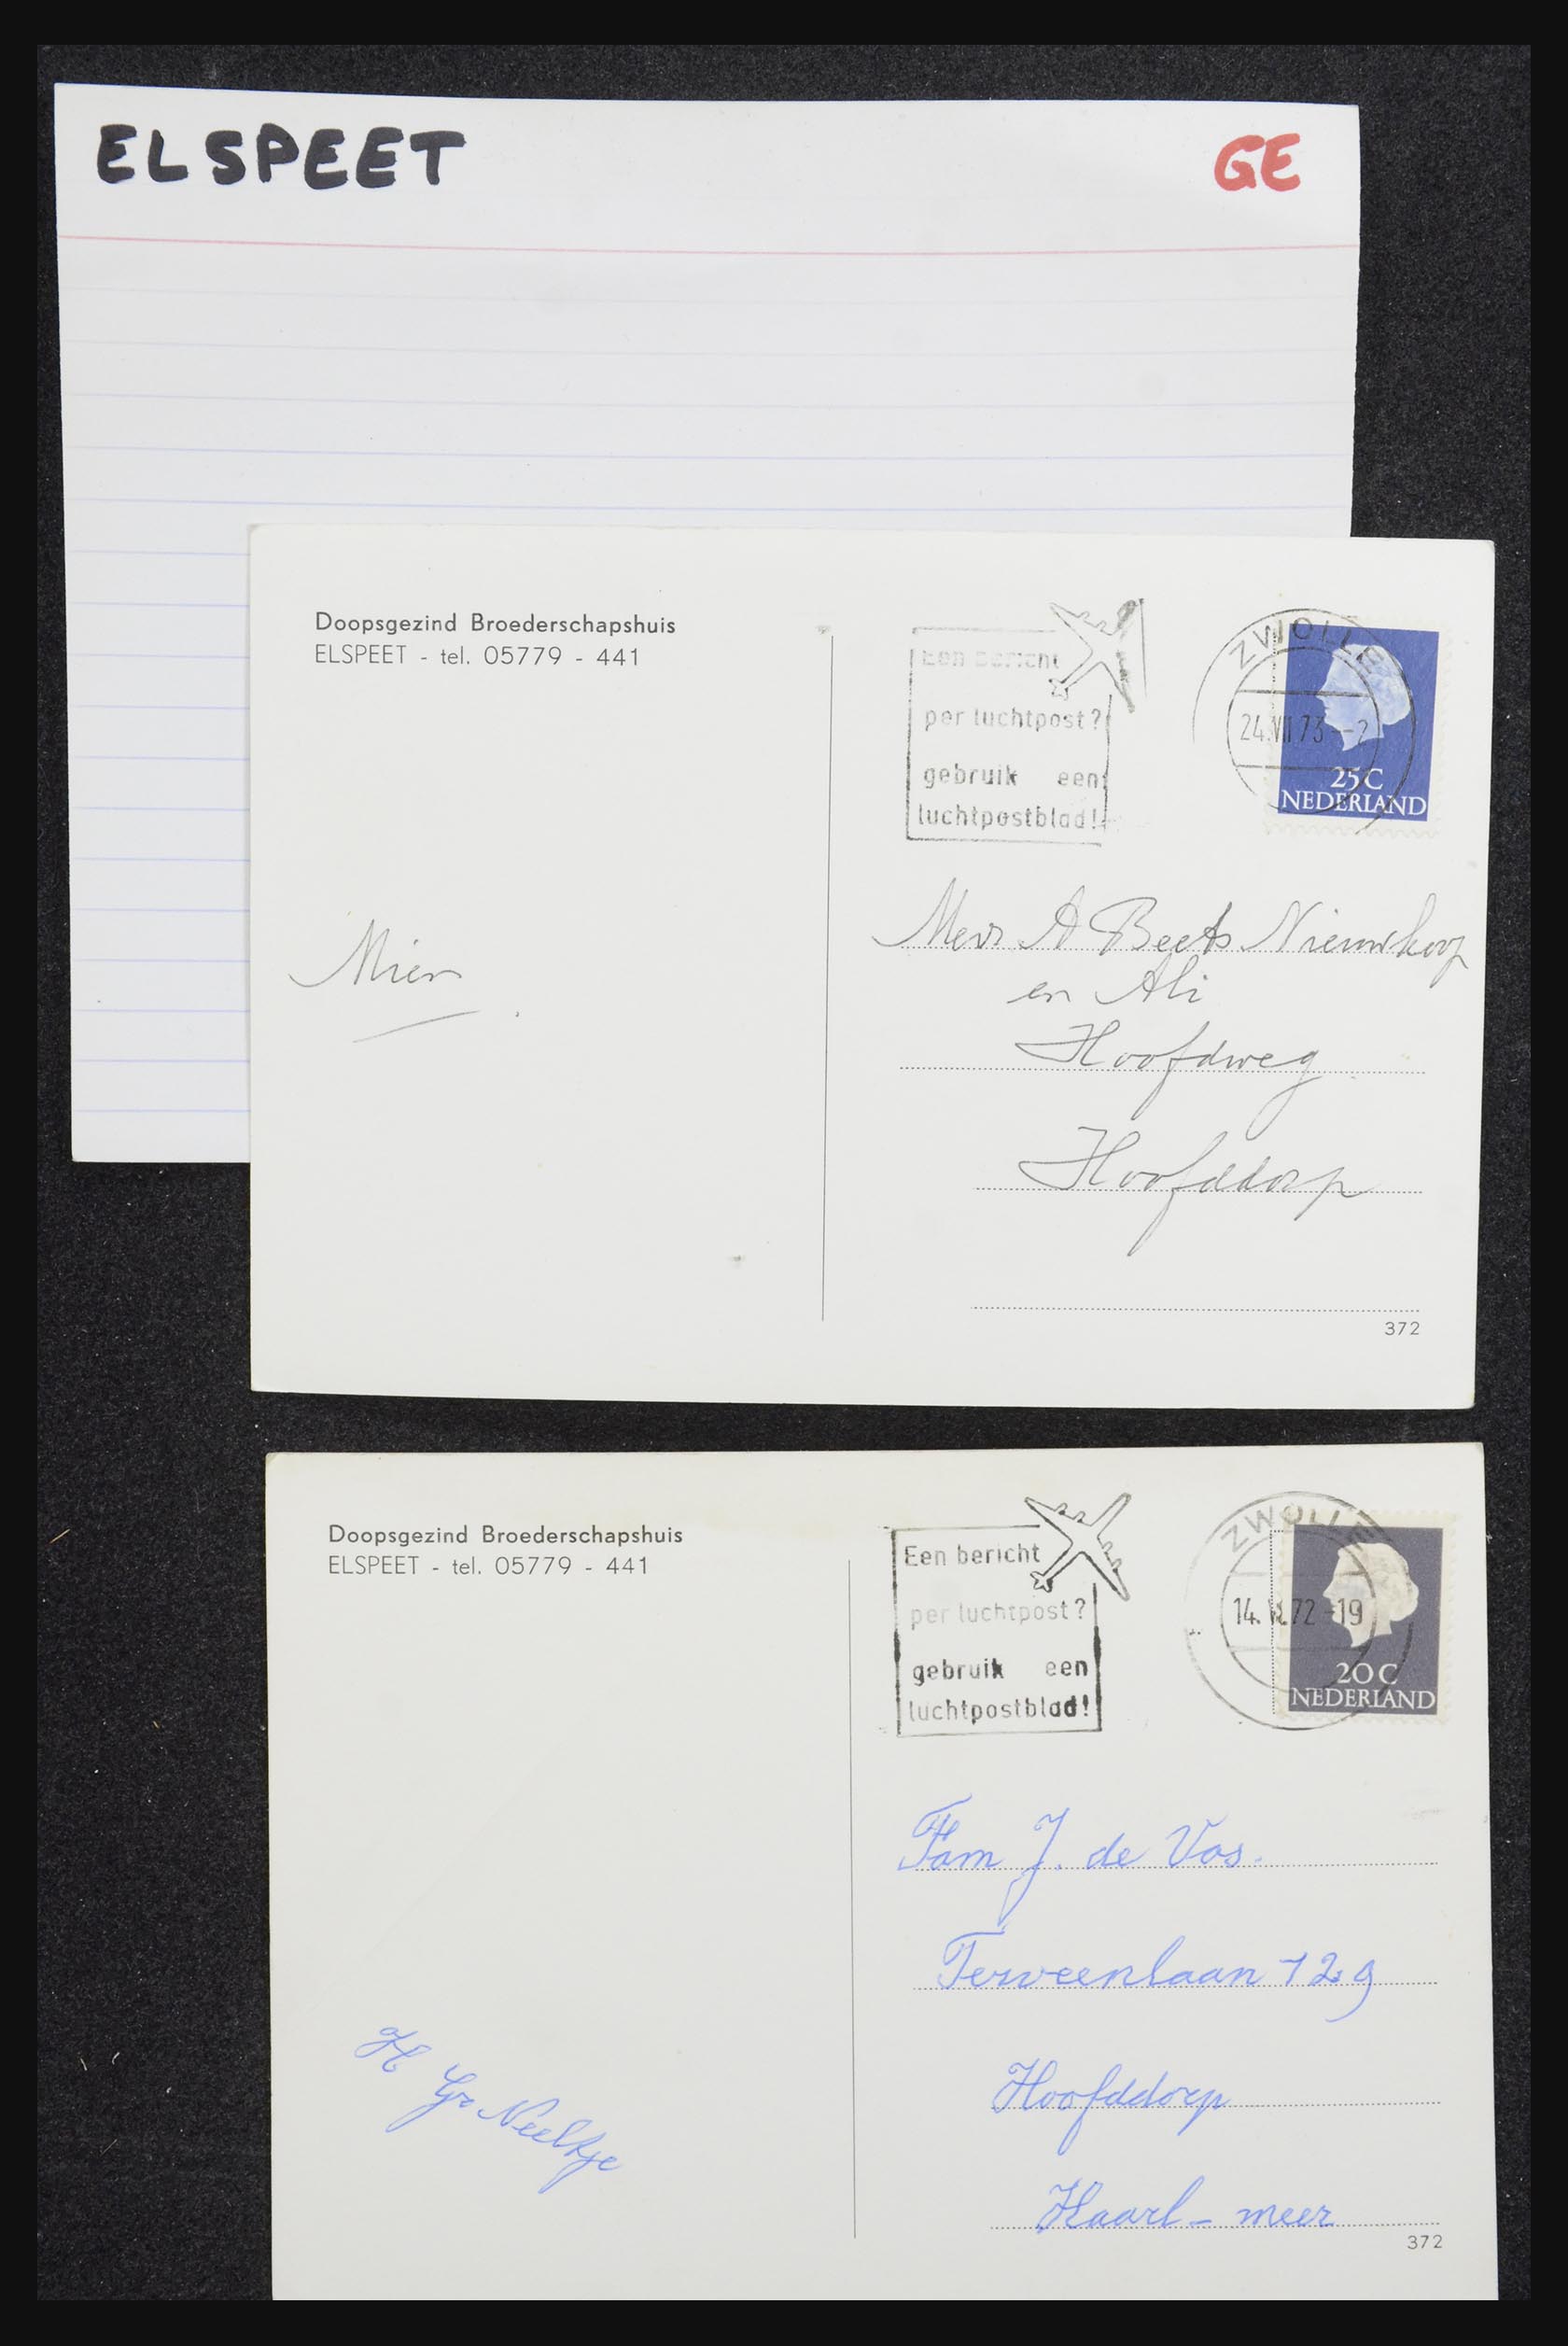 ELSPEET GE
Doopsgezind Broederschapshuis
ELSPEET - tel. 05779 - 441
Een bericht
per luchtpost?
gebruik een
luchtpostblad!
ZWOLLE
24.VII 73 - 2
25C
NEDERLAND
Mien
Mevr A Beets Nieuwkoop
en Ali
Hoofdweg
Hoofddorp
372
Doopsgezind Broederschapshuis
ELSPEET - tel. 05779 - 441
Een bericht
per luchtpost?
gebruik een
luchtpostblad!
ZWOLLE
14. 72 -19
20C
NEDERLAND
H Gr Neeltje
Fam J. de Vos.
Terveenlaan 129
Hoofddorp
Haarl- meer
372